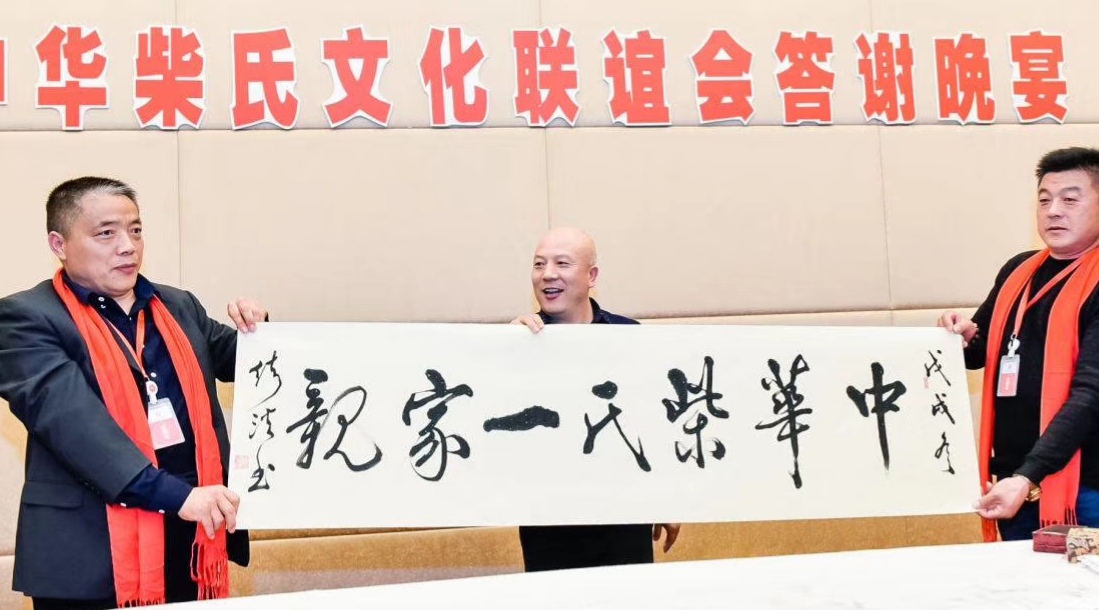 华柴氏文化联谊会答谢晚宴
戊戌冬
中華柴氏一家親
书